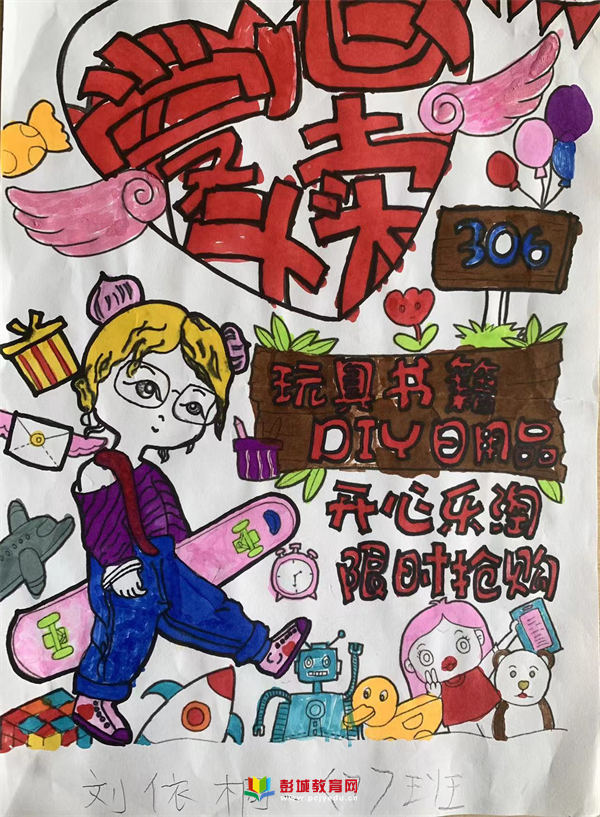 爱心
义卖
306
玩具书籍
DIY日用品
开心乐淘
限时抢购
刘依 7班
彭城教育网